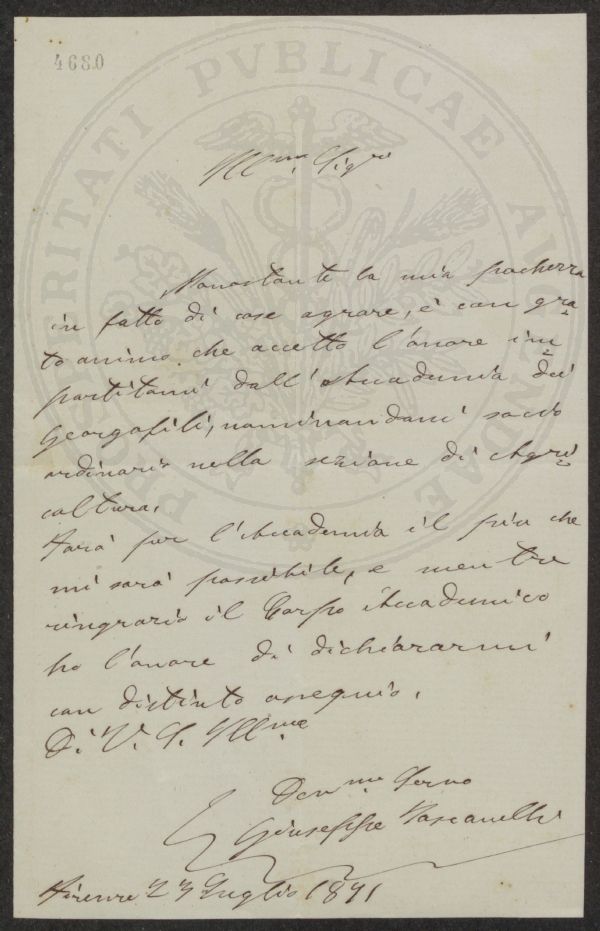 4680
PROSPERITATI PVBLICAE AVGENDAE
Ill.mo Sigre
Nonostante la mia pochezza
in fatto di cose agrare, è con gra-
to animo che accetto l'onore im-
partitomi dall'Accademia dei
Georgofili, nominandomi socio
ordinario nella sezione di Agri-
coltura.
Farò per l'Accademia il più che
mi sarà possibile, e mentre
ringrazio il Corpo Accademico
ho l'onore di dichiararmi
con distinto ossequio.
Di V. S. Illma
Devmo Servo
Giuseppe
Firenze 23 Luglio 1871